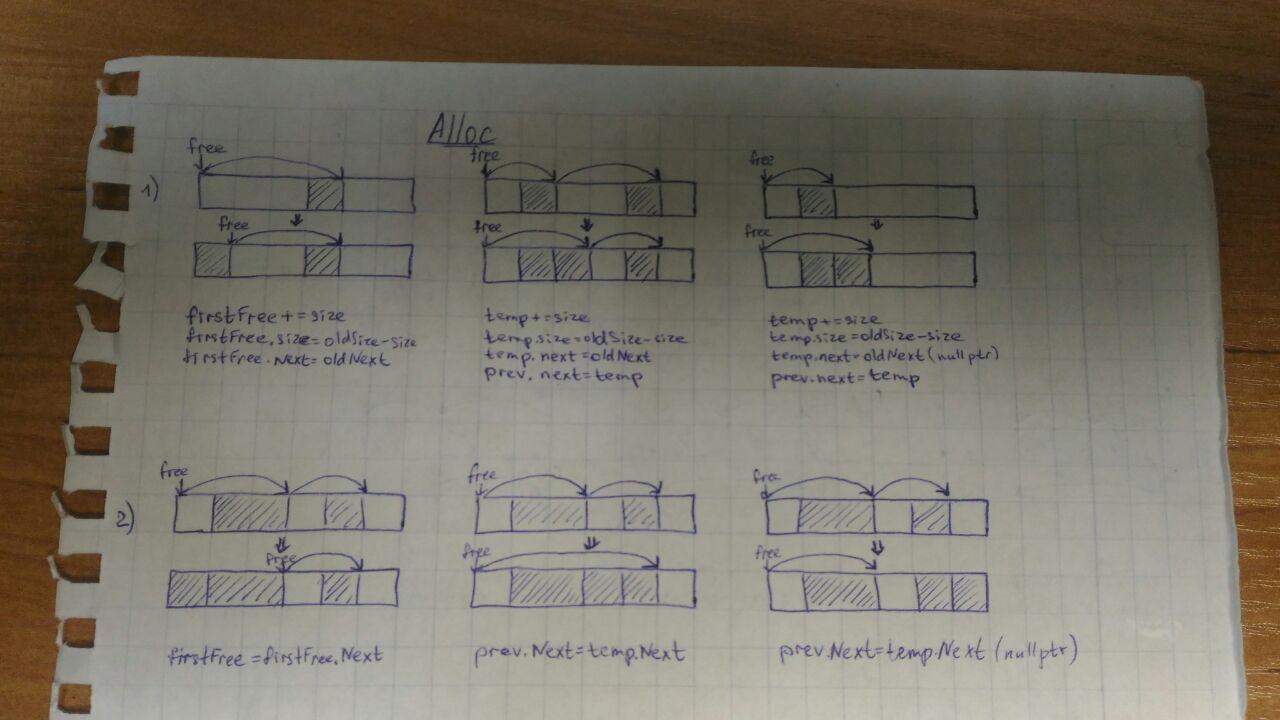 Alloc
1)
free
free
firstFree+=size
firstFree.size=oldSize-size
firstFree.Next=oldNext
free
free
temp+=size
temp.size=oldSize-size
temp.next=oldNext
prev.next=temp
free
free
temp+=size
temp.size=oldSize-size
temp.next=oldNext(nullptr)
prev.next=temp
2)
free
free
firstFree=firstFree.Next
free
free
prev.Next=temp.Next
free
free
prev.Next=temp.Next (nullptr)